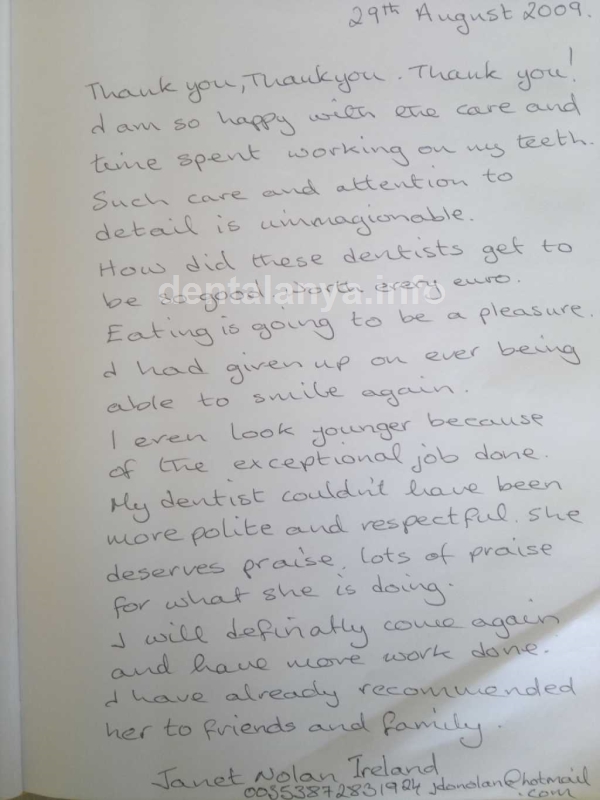 29th August 2009.
Thank you, Thankyou. Thank you!
I am so happy with the care and
time spent working on my teeth.
Such care and attention to
detail is uimmagionable.
How did these dentists get to
be so good worth every euro.
dentalanya.info
Eating is going to be a pleasure.
I had given up on ever being
able to smile again.
I even look younger because
of the exceptional job done.
My dentist couldn't have been
more polite and respectful. She
deserves praise, lots of praise
for what she is doing.
I will definatly come again
and have more work done.
I have already recommended
her to friends and family.
Janet Nolan Ireland
00353872831924 jdonolan@hotmail
.com